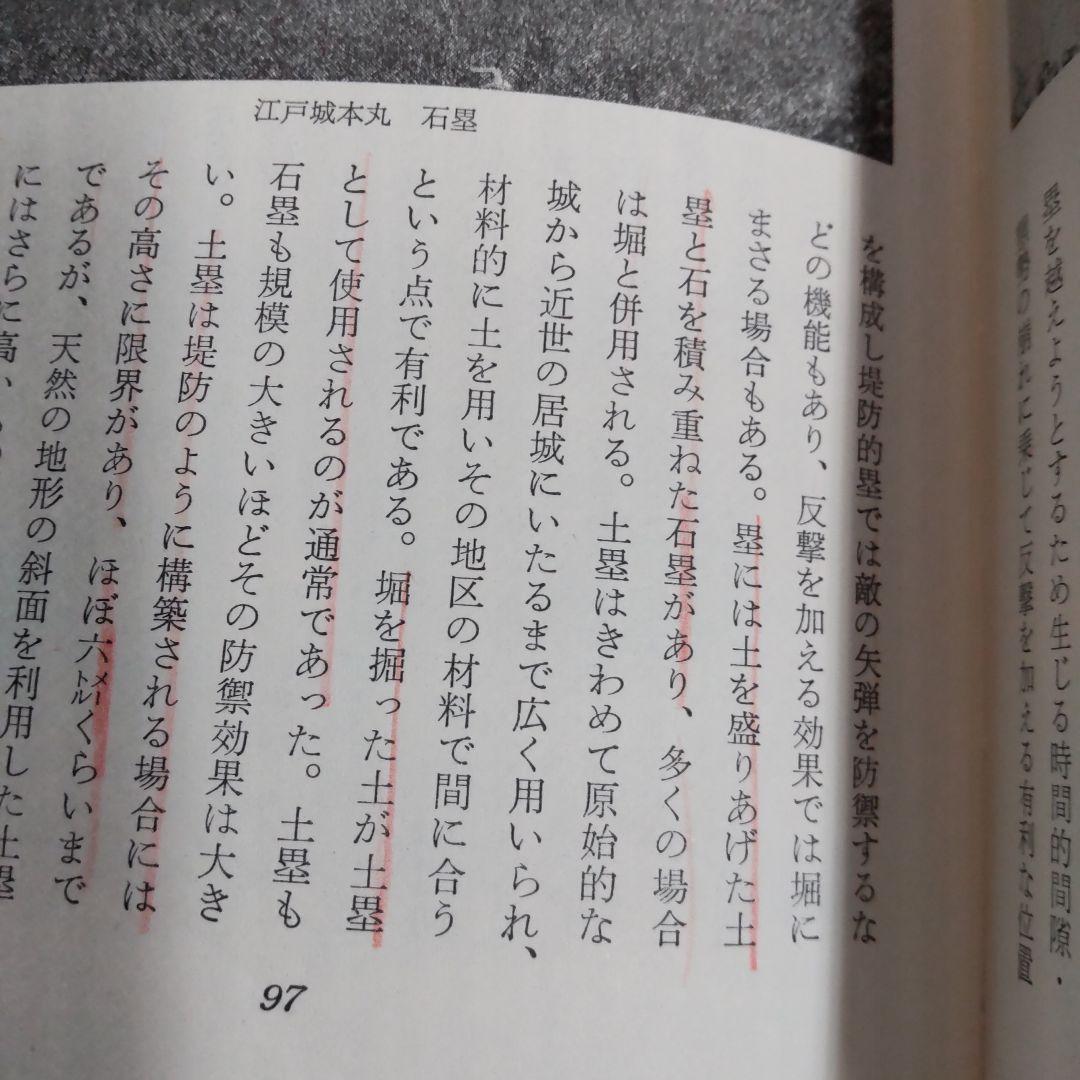 塁を越えようとするため生じる時間的間隙・
の崩れに乗じて反撃を加える有利な位置
江戸城本丸　石塁
を構成し堤防的塁では敵の矢弾を防禦するな
どの機能もあり、反撃を加える効果では堀に
まさる場合もある。塁には土を盛りあげた土
塁と石を積み重ねた石塁があり、多くの場合
は堀と併用される。土塁はきわめて原始的な
城から近世の居城にいたるまで広く用いられ、
材料的に土を用いその地区の材料で間に合う
という点で有利である。堀を掘った土が土塁
として使用されるのが通常であった。土塁も
石塁も規模の大きいほどその防禦効果は大き
い。土塁は堤防のように構築される場合には
その高さに限界があり、ほぼ六メートルくらいまで
であるが、天然の地形の斜面を利用した土塁
にはさらに高い
97